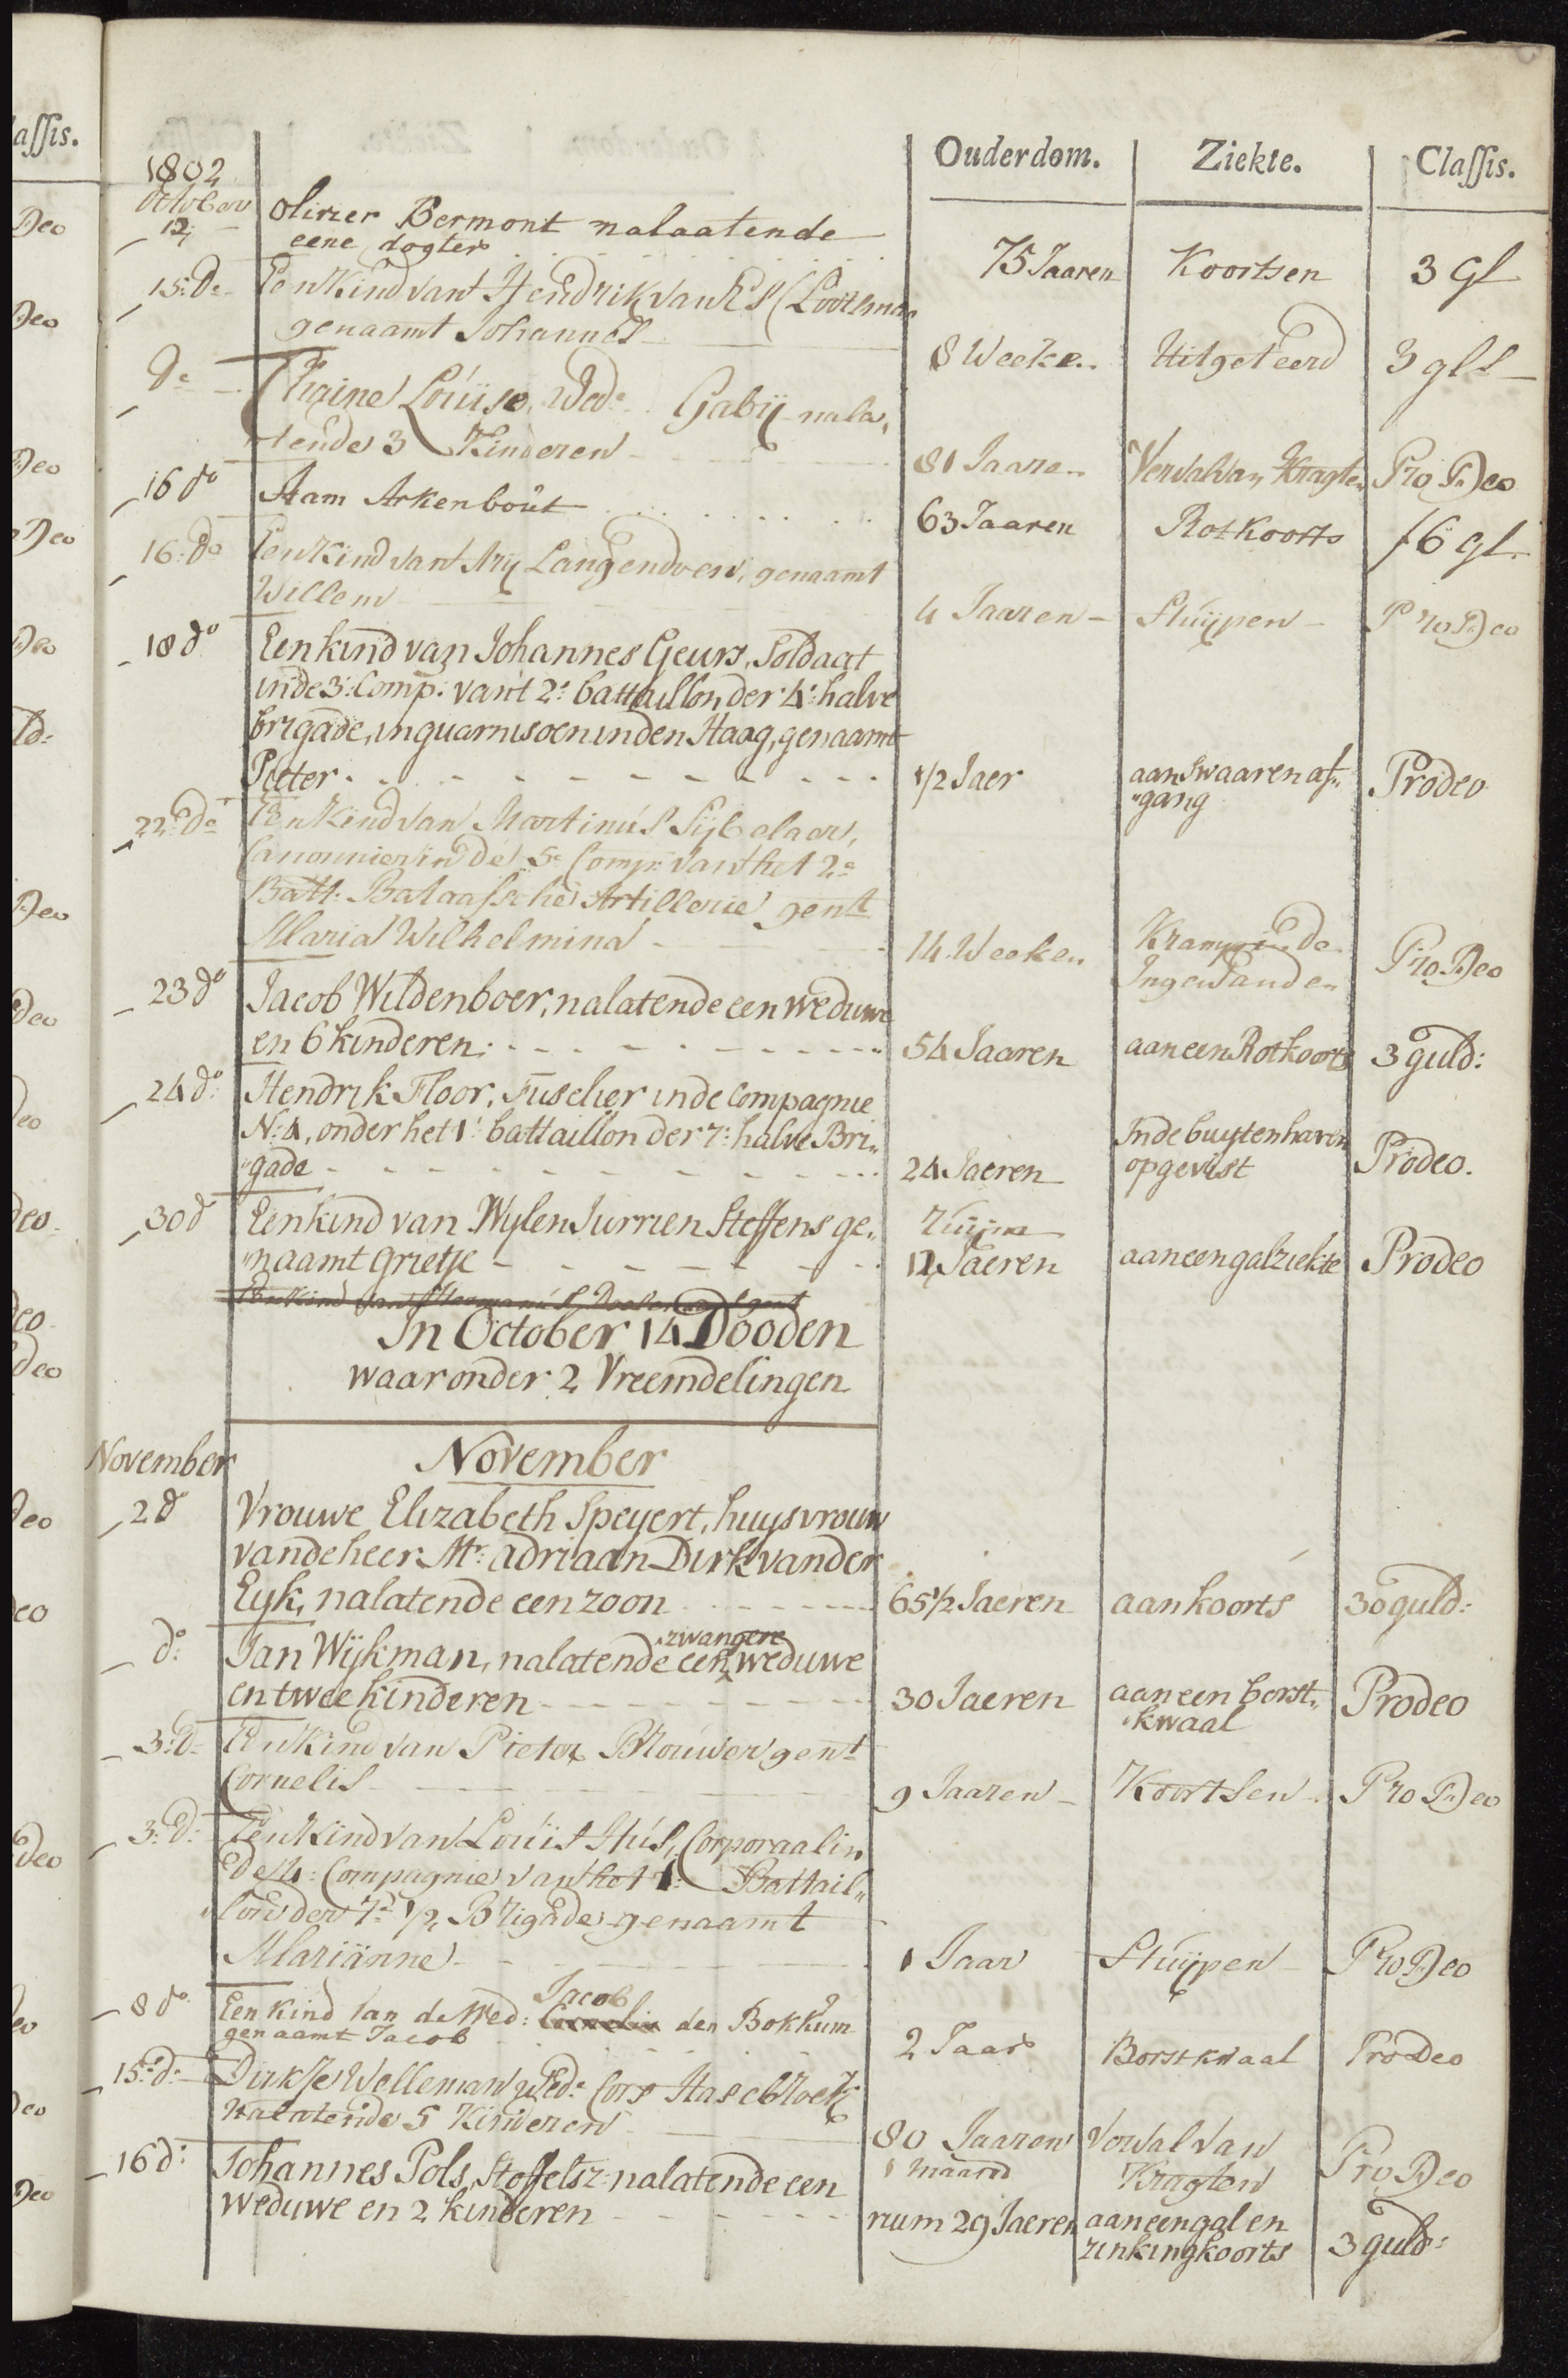 assis.
Ouderdom. Ziekte. Classis.
1802
October
12 Olivier Bermont nalaatende
eene dogter 75 Jaaren Koortsen 3 Gl
15: do Een Kind vant Hendrik van Es (Lootsman
genaamt Johannes 8 Weeken Uitgeteerd 3 gls
do Thaine Louise, Wede. Gabij nala„
tende 3 Kinderen 81 Jaaren Verval van Kragten Pro Deo
16 do Aam Arkenbout 63 Jaaren Rotkoorts f 6 gl.
16: do Een Kind vant Arij Langendoen, genaamt
Willem 4 Jaaren Stuijpen Pro Deo
18 do Een kind van Johannes Geurs, Soldaat
in de 3e: Comp: van't 2e: battaillon der 4e: halve
brigade, in guarnisoen in den Haag, genaamt
Pieter 1/2 Jaer aan Swaaren af„
„gang Prodeo
22: do Een Kind van Martinus Sijbelaer,
Canonnier in de 5e Compe. van het 2e
Batt: Bataafsche Artillerie gent
Maria Wilhelmina 14 Weeken Kramp in de
Ingewanden Pro Deo
23 do Jacob Wildenboer, nalatende een weduwe
en 6 kinderen. 54 Jaaren aan een Rotkoorts 3 guld:
24 do: Hendrik Floor, Fuselier in de Compagnie
N: 4, onder het 1e battaillon der 7e: halve Bri„
„gade 24 Jaeren In de buytenhaven
opgevist Prodeo.
30 d Een kind van Wylen Jurrien Steffens ge„
„naamt Grietje Ruijm
12 Jaeren aan een galziekte Prodeo
Een Kind van Hermanus gent
In October 14 Dooden
waar onder 2 Vreemdelingen
November November
2 d Vrouwe Elizabeth Speyert, huysvrouw
van de heer Mr. Adriaan Dirk van der
Eyk, nalatende een zoon 65 1/2 Jaeren aan koorts 30 guld:
do: Jan Wijkman, nalatende een zwangere weduwe
en twee kinderen 30 Jaeren aan een borst„
„kwaal Prodeo
3: d: Een Kind van Pieter Brouwer gent
Cornelis 9 Jaaren Koortsen Pro Deo
3: d: Een Kind van Louis Hus, Corporaal in
de 4: Compagnie van het 1: Battail„
lon der 7e 1/2 Brigade genaamt
Marianne 1 Jaar Stuijpen Pro Deo
8 do Een kind van de Wed: Cornelis Jacob den Bokkum
genaamt Jacob 2 Jaar Borstkwaal Pro Deo
15: do Dirkje Welleman Wede. Cors Hasebroek
Nalatende 5 Kinderen 80 Jaaren
1 maand Verval van
Kragten Pro Deo
16 d: Johannes Pols, Stoffelsz: nalatende een
weduwe en 2 kinderen ruim 29 Jaeren aan een gal en
zinkingkoorts 3 guld: